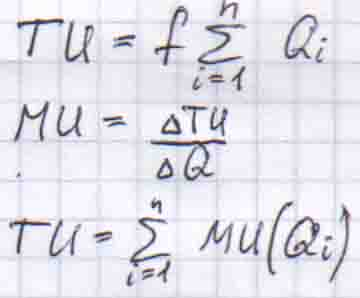 TU = f∑ᵢ₌₁ⁿ Qᵢ
MU = ΔTU/ΔQ
TU = ∑ᵢ₌₁ⁿ MU(Qᵢ)